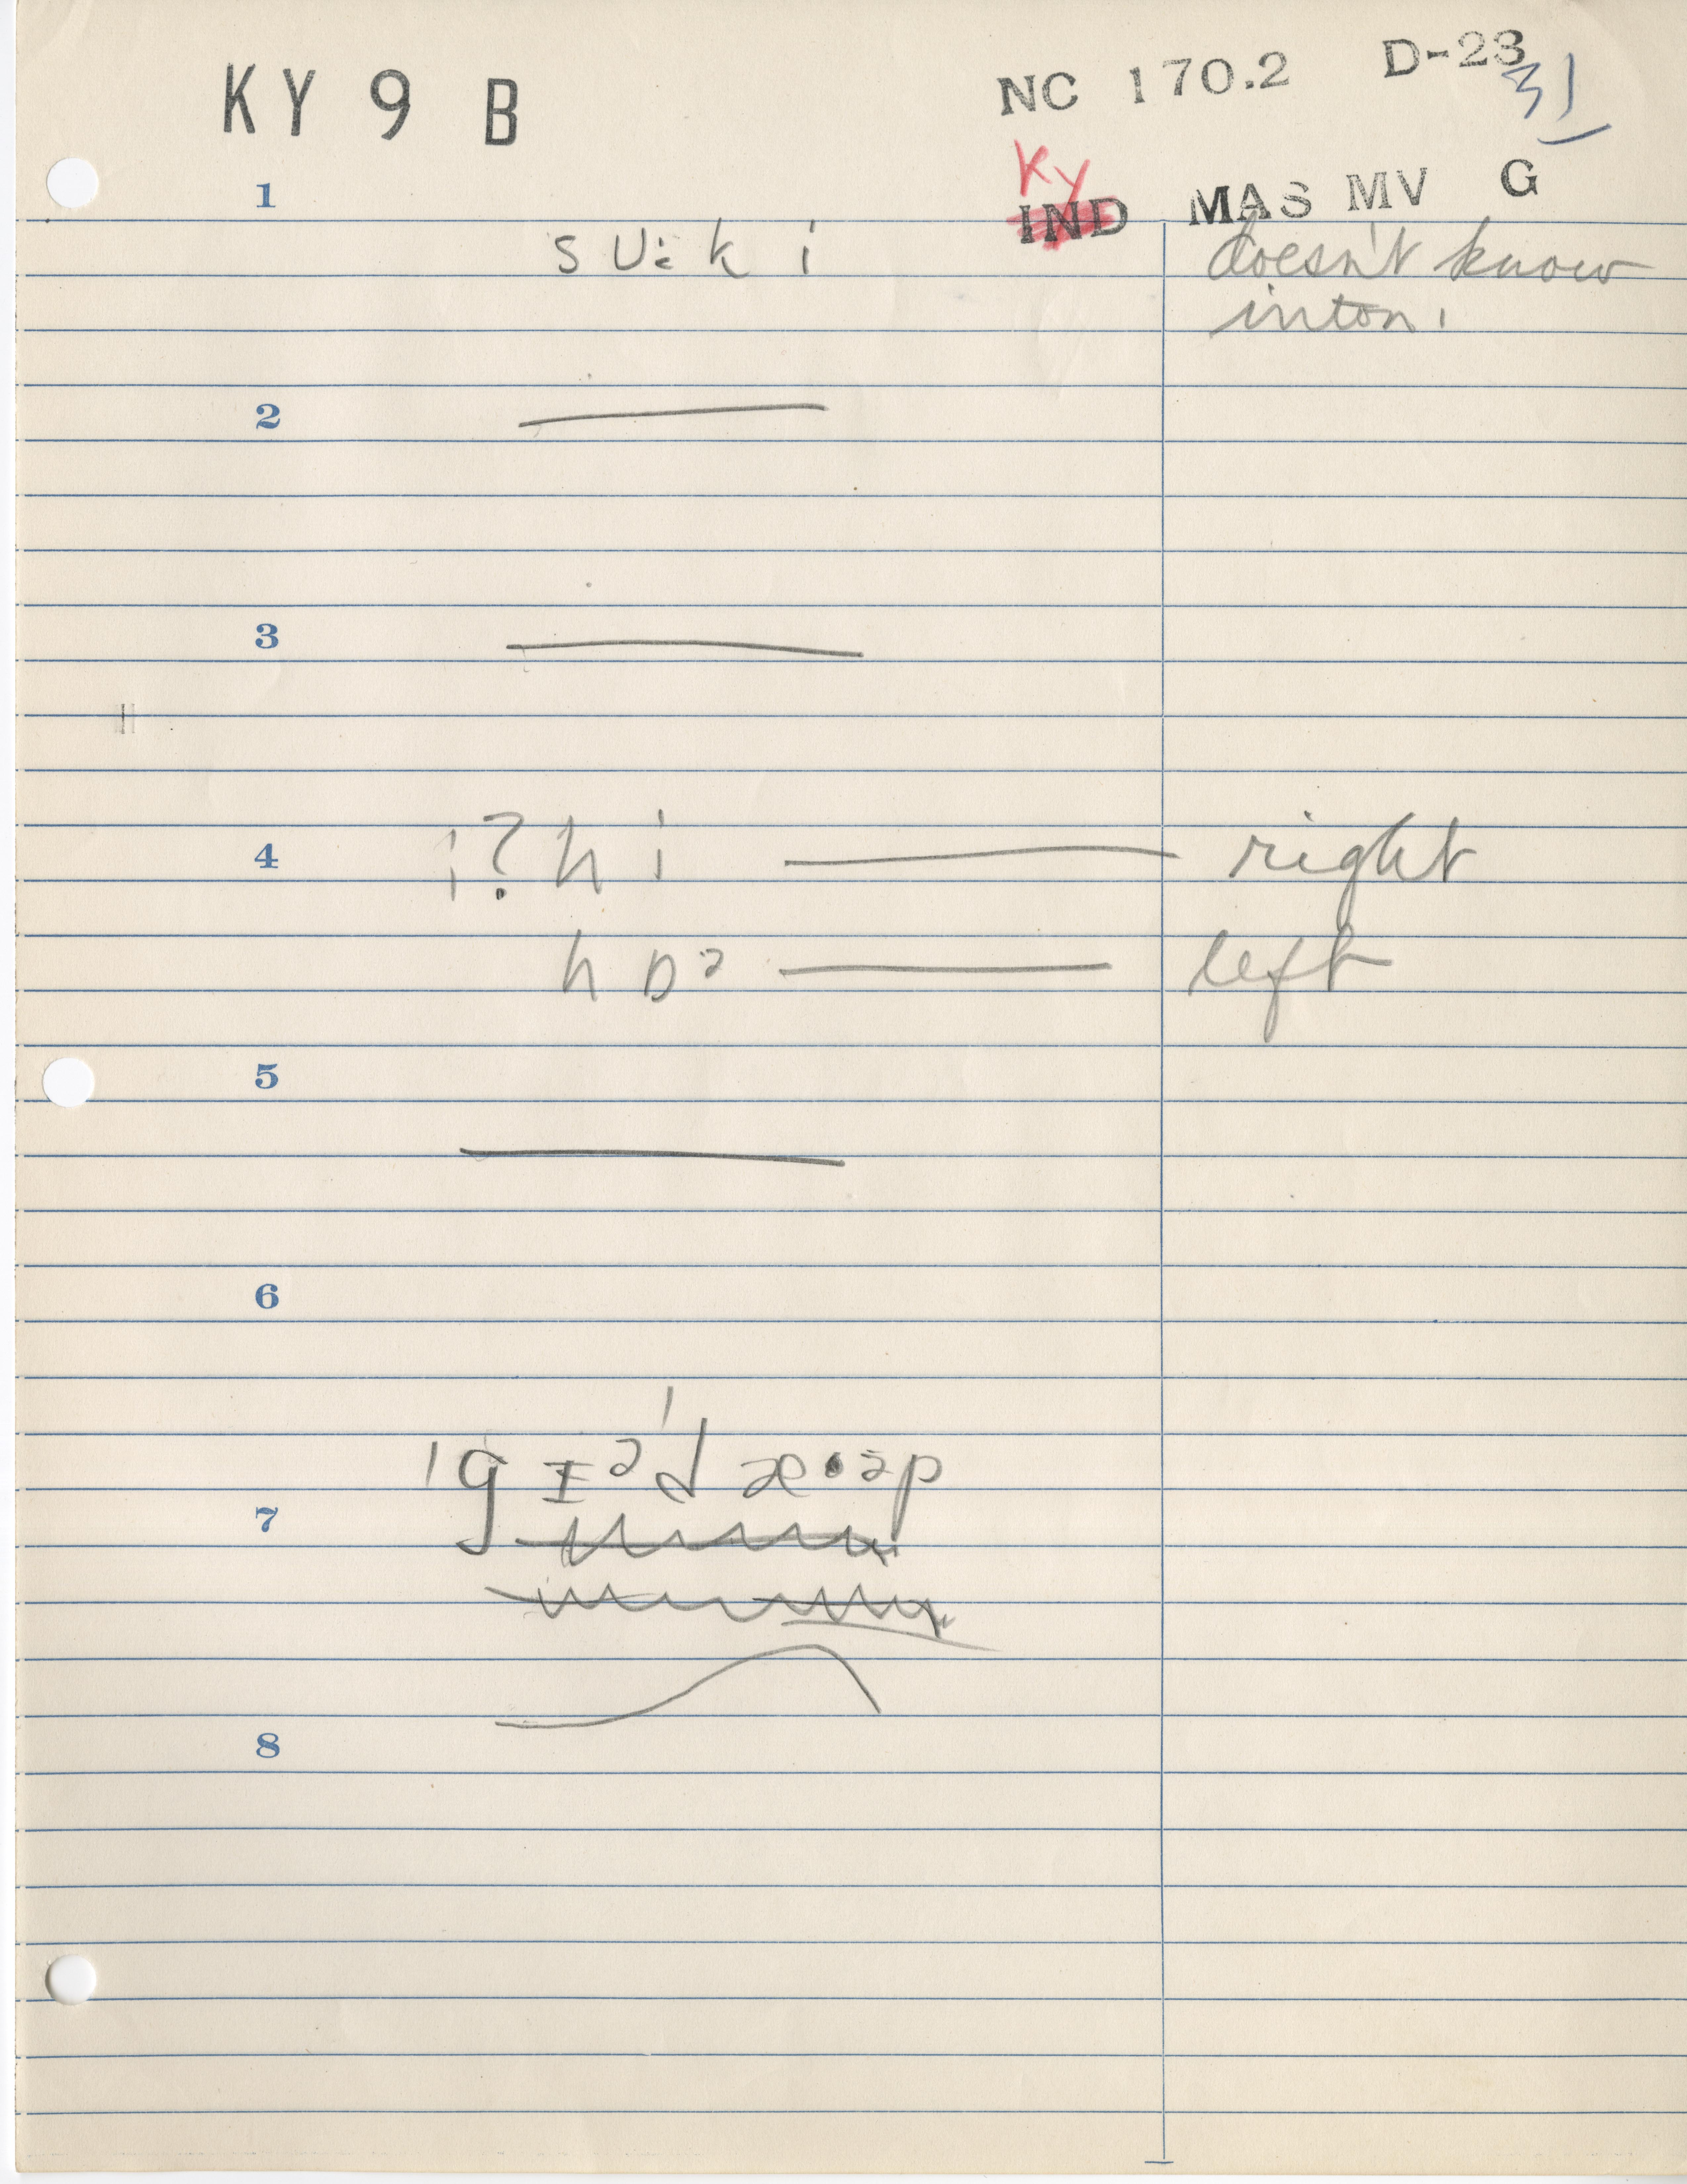 KY 9 B NC 170.2 D-23
31
Ky
1 IND MAS MV G
s ʊ: k i doesn't know
inton.
2
3
4 ¡? h i right
h ɒᵊ left
5
6
7 ˈg ɪᵊˈd æ·əp
8